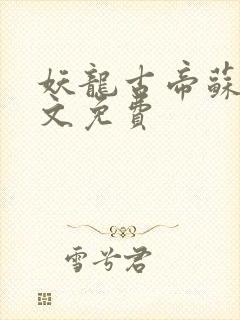 妖龍古帝蘇
文免費
雪兮君